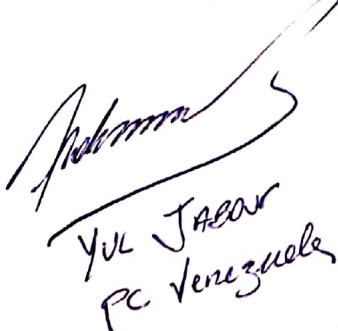 YUL JABOUR
PC. Venezuela